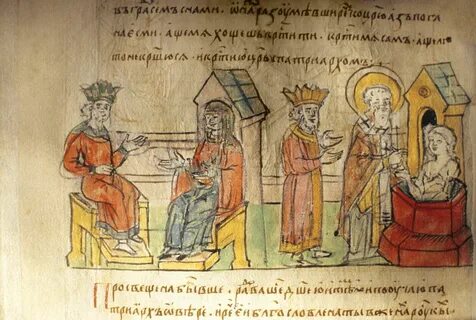 въ градѣ с нами . ѡна же разоумѣвши рече ко црю азъ пога
на есми . а ще мѧ хощешь кртити . крти мѧ самъ . аще ли
то не крщюсѧ . и крти ю црь с патриархомъ .
Просвещена бывше . радоваше дшею и тѣло и поучи ю па
триархъ ѡ вѣре . и рече еи благословлена ты в жена роускы